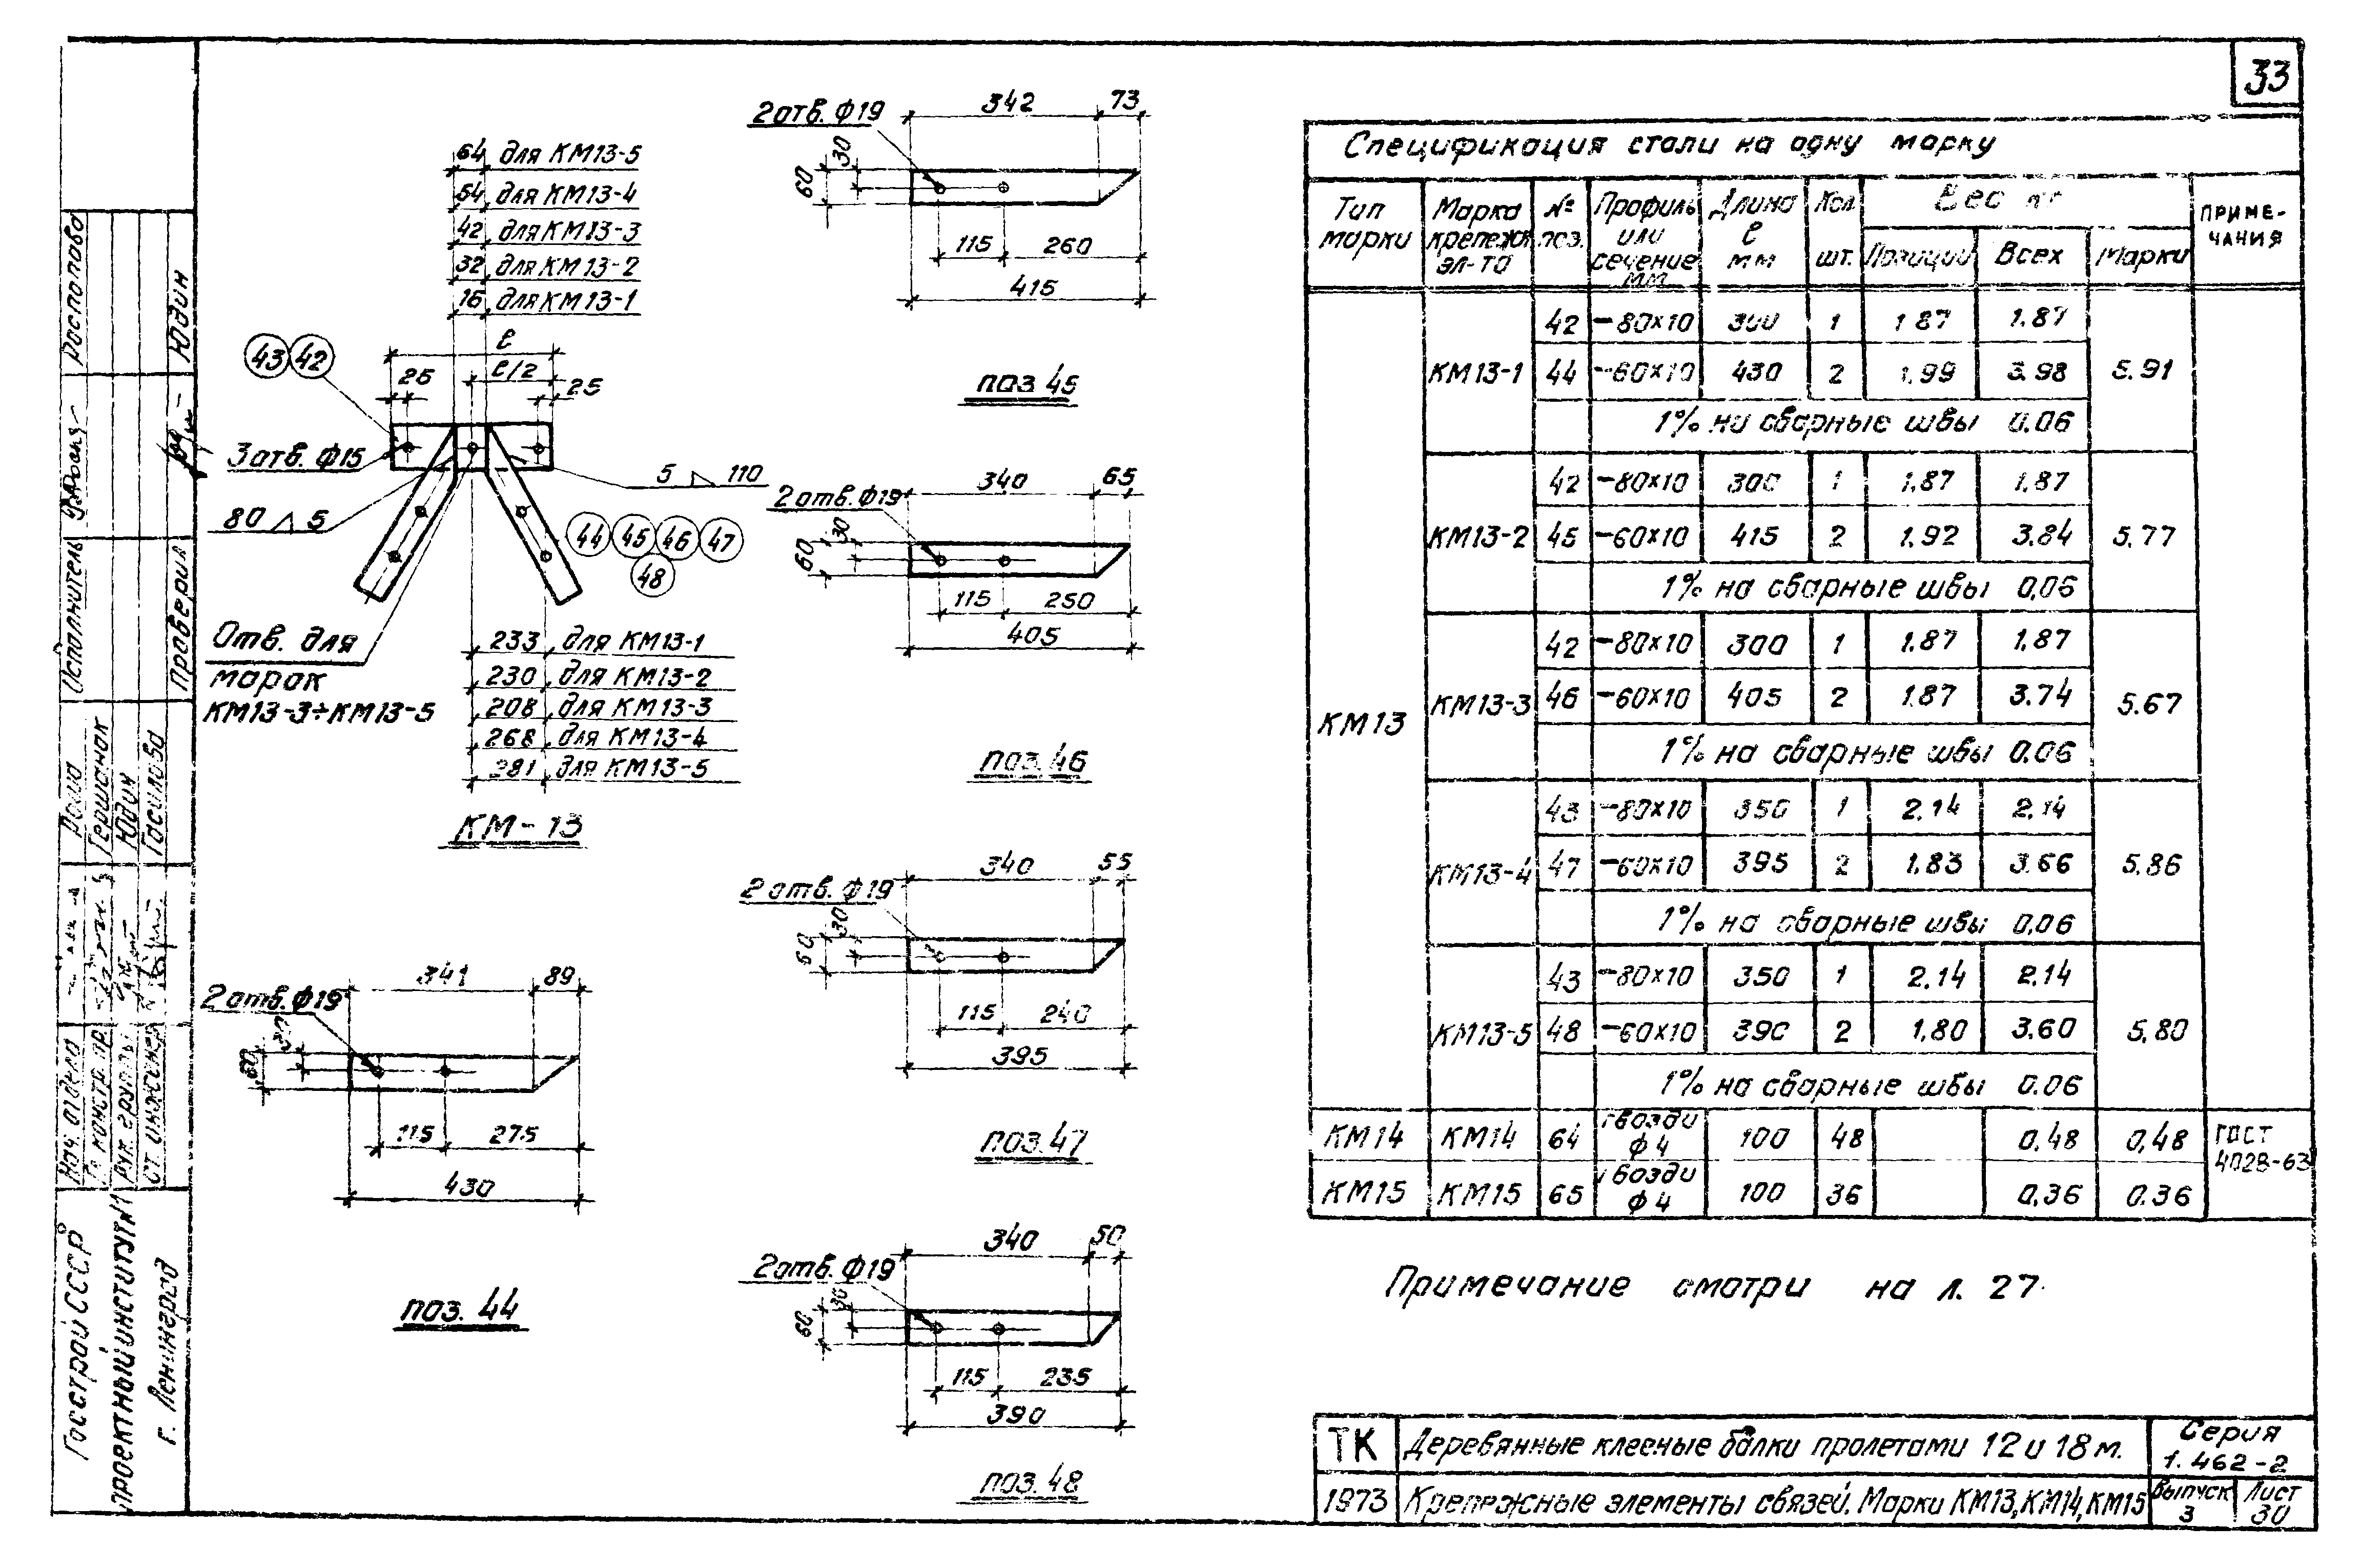 33
64 для КМ13-5
54 для КМ13-4
42 для КМ13-3
32 для КМ13-2
16 для КМ13-1
43 42
ℓ
ℓ/2
25
25
3 отв. Ф15
80 5
5 110
44 45 46 47
48
Отв. для
марок
КМ13-3÷КМ13-5
233 для КМ13-1
230 для КМ13-2
208 для КМ13-3
268 для КМ13-4
381 для КМ13-5
КМ-13
341 89
2 отв. Ф19
30
60
115 275
430
поз. 44
342 73
2 отв. Ф19
30
60
115 260
415
поз 45
340 65
2 отв. Ф19
30
60
115 250
405
поз. 46
340 55
2 отв. Ф19
30
60
115 240
395
поз. 47
340 50
2 отв. Ф19
30
60
115 235
390
поз. 48
Спецификация стали на одну марку
Тип марки
Марка крепежн эл-та
№ поз.
Профиль или сечение мм
Длина ℓ мм
Кол. шт.
Вес кг
Позиции Всех Марки
ПРИМЕ-
ЧАНИЯ
КМ13
КМ13-1
42 -80×10 300 1 1.87 1.87
44 -60×10 430 2 1.99 3.98 5.91
1% на сварные швы 0.06
КМ13-2
42 -80×10 300 1 1.87 1.87
45 -60×10 415 2 1.92 3.84 5.77
1% на сварные швы 0,06
КМ13-3
42 -80×10 300 1 1.87 1.87
46 -60×10 405 2 1.87 3.74 5.67
1% на сварные швы 0.06
КМ13-4
43 -80×10 350 1 2.14 2.14
47 -60×10 395 2 1.83 3.66 5.86
1% на сварные швы 0,06
КМ13-5
43 -80×10 350 1 2.14 2.14
48 -60×10 390 2 1.80 3.60 5.80
1% на сварные швы 0.06
КМ14 КМ14 64 гвозди Ф4 100 48 0,48 0,48
КМ15 КМ15 65 гвозди Ф4 100 36 0,36 0.36
ГОСТ
4028-63
Примечание смотри на л. 27
ТК Деревянные клееные балки пролетами 12 и 18 м.
Серия
1.462-2
1973 Крепежные элементы связей. Марки КМ13, КМ14, КМ15
Выпуск
3
Лист
30
Госстрой СССР
ПРОЕКТНЫЙ ИНСТИТУТ №1
г. Ленинград
Нач. отдела
Гл. констр. пр.
Рук. группы
Ст. инженер
Гершанок
Юдин
Гасилова
Исполнитель
Проверил
Юдин